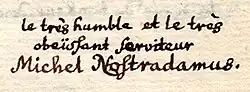 le très humble et le très
obeïssant serviteur
Michel Nostradamus.